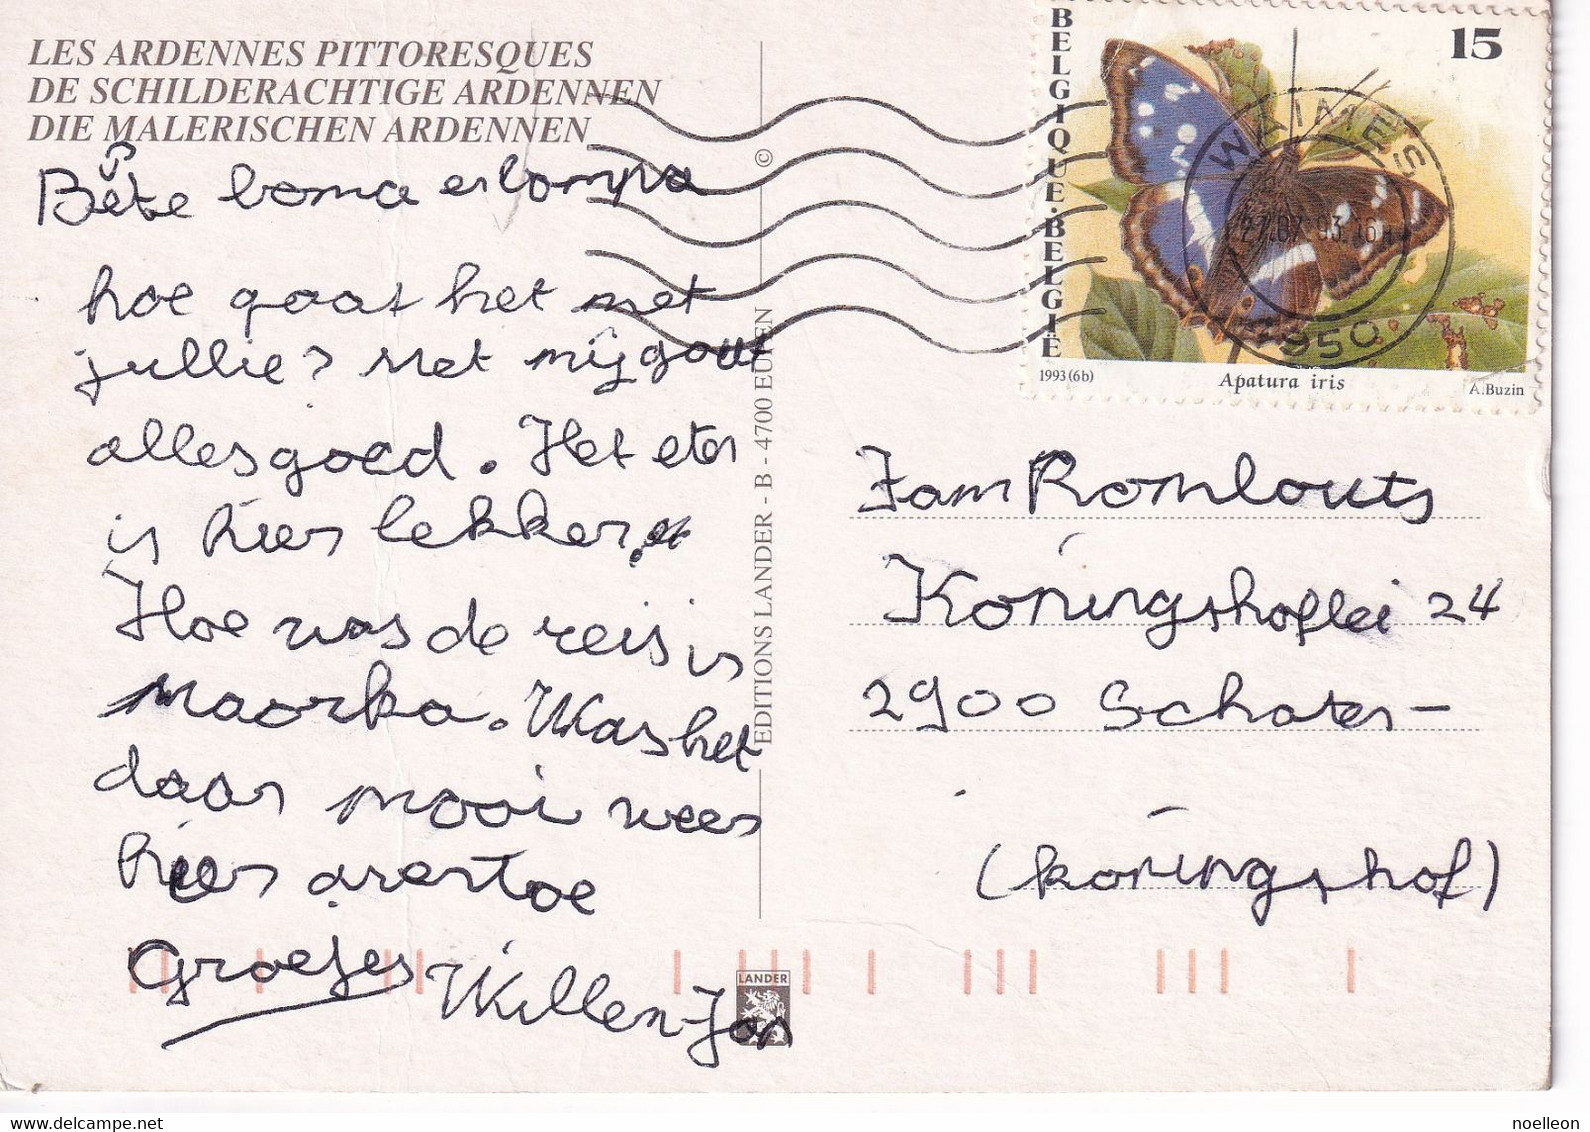 LES ARDENNES PITTORESQUES
DE SCHILDERACHTIGE ARDENNEN
DIE MALERISCHEN ARDENNEN
Bste boma en bompa
hoe gaat het met
jullie? Met mij gaat
alles goed. Het eten
is hier lekker.
Hoe was de reis in
Maorka. Was het
daar mooi
hier
Groetjes Willem-Jan
©
EDITIONS LANDER - B - 4700 EUPEN
LANDER
BELGIQUE·BELGIË
15
WAIMES
27.07.93.16H
4950
1993 (6b)
Apatura iris
A.Buzin
Fam Romlouts
Koningshoflei 24
2900 Schoten-
(koningshof)
noelleon